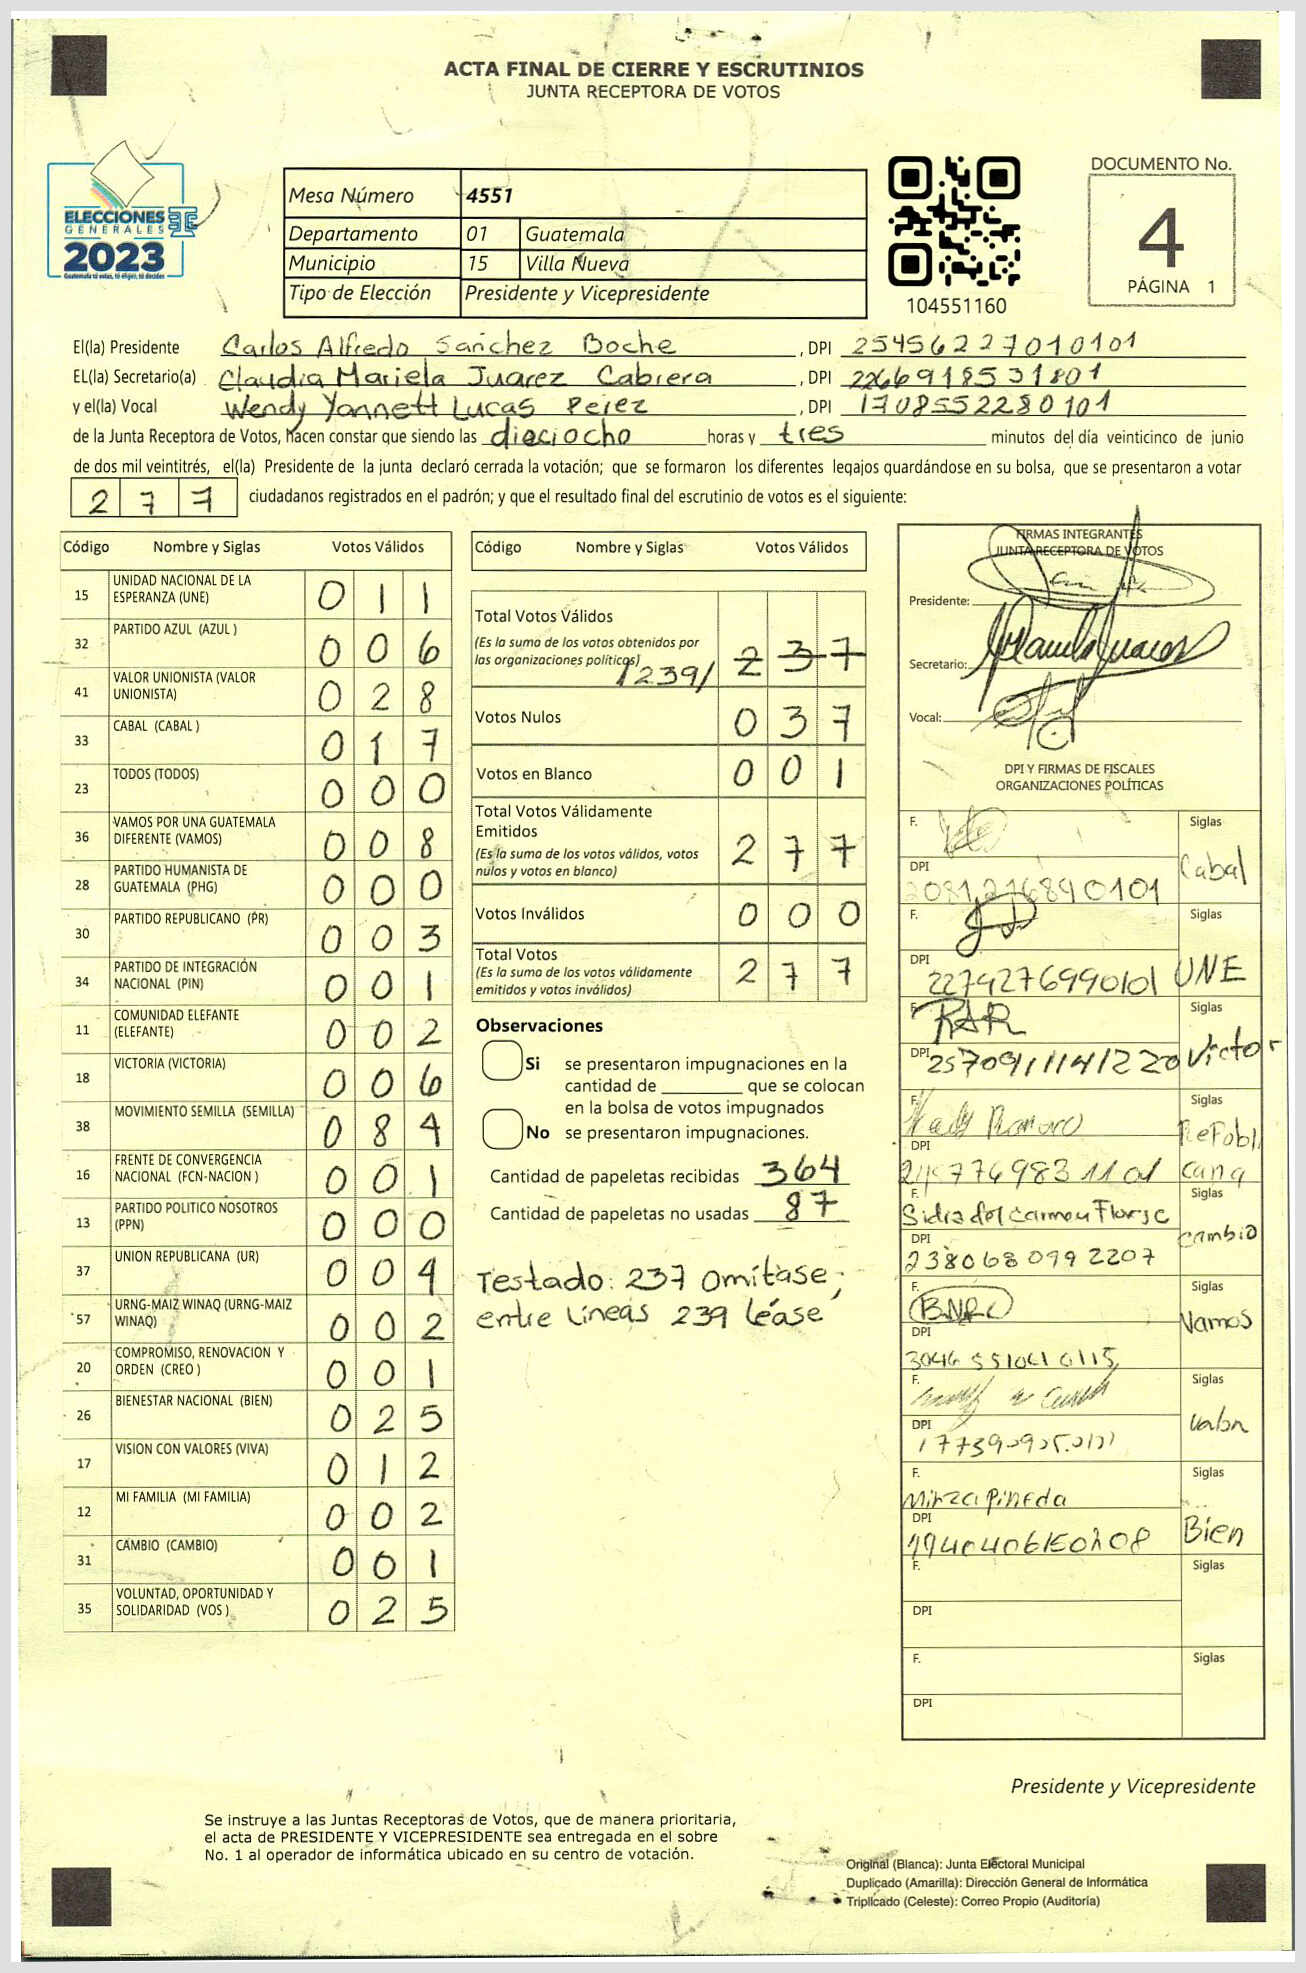 ACTA FINAL DE CIERRE Y ESCRUTINIOS
JUNTA RECEPTORA DE VOTOS
ELECCIONES
GENERALES
2023
Guatemala tú votas, tú eliges, tú decides
Mesa Número 4551
Departamento 01 Guatemala
Municipio 15 Villa Nueva
Tipo de Elección Presidente y Vicepresidente
104551160
DOCUMENTO No.
4
PÁGINA 1
El(la) Presidente Carlos Alfredo Sanchez Boche , DPI 2545622701 0101
EL(la) Secretario(a) Claudia Mariela Juarez Cabrera , DPI 2266918531801
y el(la) Vocal Wendy Yannett Lucas Perez , DPI 1708552280101
de la Junta Receptora de Votos, hacen constar que siendo las dieciocho horas y tres minutos del día veinticinco de junio
de dos mil veintitrés, el(la) Presidente de la junta declaró cerrada la votación; que se formaron los diferentes legajos guardándose en su bolsa, que se presentaron a votar
277 ciudadanos registrados en el padrón; y que el resultado final del escrutinio de votos es el siguiente:
Código Nombre y Siglas Votos Válidos
15 UNIDAD NACIONAL DE LA ESPERANZA (UNE) 011
32 PARTIDO AZUL (AZUL ) 006
41 VALOR UNIONISTA (VALOR UNIONISTA) 028
33 CABAL (CABAL ) 017
23 TODOS (TODOS) 000
36 VAMOS POR UNA GUATEMALA DIFERENTE (VAMOS) 008
28 PARTIDO HUMANISTA DE GUATEMALA (PHG) 000
30 PARTIDO REPUBLICANO (PR) 003
34 PARTIDO DE INTEGRACIÓN NACIONAL (PIN) 001
11 COMUNIDAD ELEFANTE (ELEFANTE) 002
18 VICTORIA (VICTORIA) 006
38 MOVIMIENTO SEMILLA (SEMILLA) 084
16 FRENTE DE CONVERGENCIA NACIONAL (FCN-NACION ) 001
13 PARTIDO POLITICO NOSOTROS (PPN) 000
37 UNION REPUBLICANA (UR) 004
57 URNG-MAIZ WINAQ (URNG-MAIZ WINAQ) 002
20 COMPROMISO, RENOVACION Y ORDEN (CREO ) 001
26 BIENESTAR NACIONAL (BIEN) 025
17 VISION CON VALORES (VIVA) 012
12 MI FAMILIA (MI FAMILIA) 002
31 CAMBIO (CAMBIO) 001
35 VOLUNTAD, OPORTUNIDAD Y SOLIDARIDAD (VOS ) 025
Código Nombre y Siglas Votos Válidos
Total Votos Válidos
(Es la suma de los votos obtenidos por
las organizaciones políticas) /239/ 237
Votos Nulos 037
Votos en Blanco 001
Total Votos Válidamente
Emitidos
(Es la suma de los votos válidos, votos
nulos y votos en blanco) 277
Votos Inválidos 000
Total Votos
(Es la suma de los votos válidamente
emitidos y votos inválidos) 277
Observaciones
Si se presentaron impugnaciones en la
cantidad de ________ que se colocan
en la bolsa de votos impugnados
No se presentaron impugnaciones.
Cantidad de papeletas recibidas 364
Cantidad de papeletas no usadas 87
Testado: 237 omítase;
entre líneas 239 léase
FIRMAS INTEGRANTES
JUNTA RECEPTORA DE VOTOS
Presidente:
Secretario:
Vocal:
DPI Y FIRMAS DE FISCALES
ORGANIZACIONES POLÍTICAS
F. Siglas
DPI Cabal
F. Siglas
DPI 2279276990101 UNE
F. RAR Siglas
DPI 2570911141220 Victor
F. Siglas
DPI
F. Siglas
Cambio
DPI 2380680992207
F. BNRL Siglas
DPI Vamos
F. Siglas
DPI
F. Siglas
Mirza Pineda
DPI Bien
F. Siglas
DPI
F. Siglas
DPI
Presidente y Vicepresidente
Se instruye a las Juntas Receptoras de Votos, que de manera prioritaria,
el acta de PRESIDENTE Y VICEPRESIDENTE sea entregada en el sobre
No. 1 al operador de informática ubicado en su centro de votación.
Original (Blanca): Junta Electoral Municipal
Duplicado (Amarilla): Dirección General de Informática
Triplicado (Celeste): Correo Propio (Auditoría)